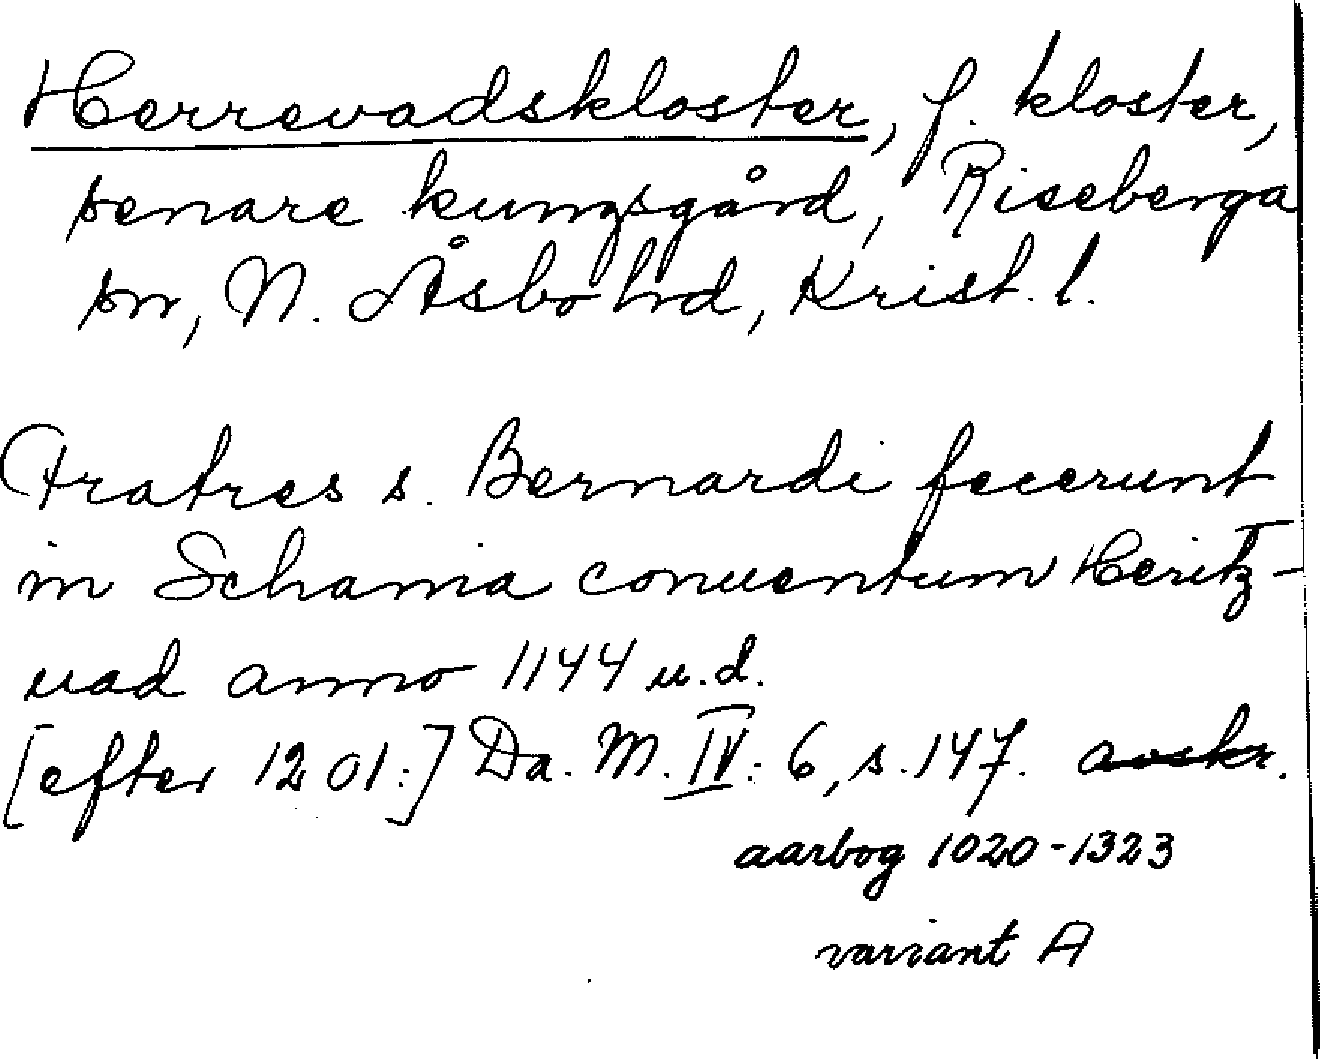 Herrevadskloster, f. kloster,
senare kungsgård, Riseberga
sn, N. Åsbo hd, Krist. l.
Fratres s. Bernardi fecerunt
in Schania conuentum Heritz-
uad anno 1144 u.d.
[efter 1201.] Da. M. IV: 6, s. 147. avskr.
aarbog 1020-1323
variant A